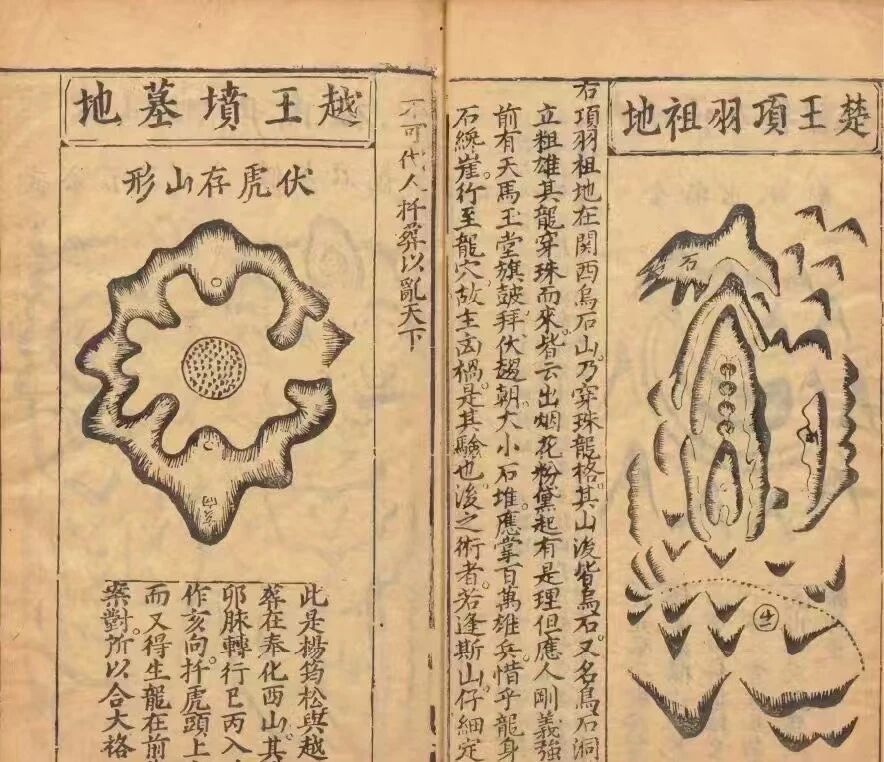 楚王項羽祖地
石
右項羽祖地在関西烏石山。乃穿珠龍格。其山後皆烏石。又名烏石洞
立粗雄其龍穿珠而來。皆云出烟花粉黛起有是理但應人剛義強
前有天馬玉堂旗皷。拜伏趨朝。大小石堆。應掌百萬雄兵。惜乎龍身
石纔崖。行至龍穴。故主凶禍。是其驗也。後之術者。若逢斯山。仔細定
不可代人扦葬以亂天下
越王墳墓地
伏虎存山形
案山
此是楊筠松與越
葬在奉化西山。其
卯脉轉行巳丙入
作亥向。扦虎頭上
而又得生龍在前
案對。所以合大格